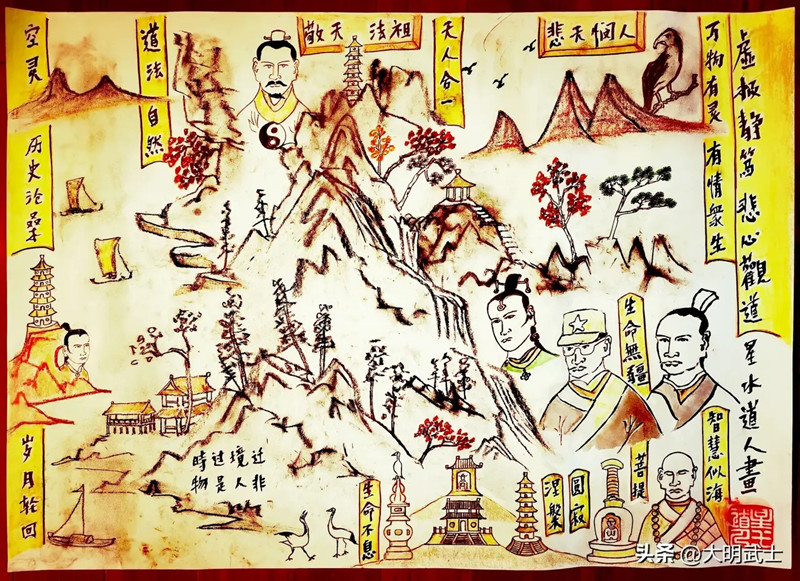 空灵
道法自然
敬天法祖
天人合一
悲天悯人
万物有灵
有情衆生
虛极静笃
悲心觀道
星水道人畫
历史沧桑
生命無疆
智慧似海
時过境迁
物是人非
岁月轮回
生命不息
涅槃
圓寂
菩提
头条 @大明武士